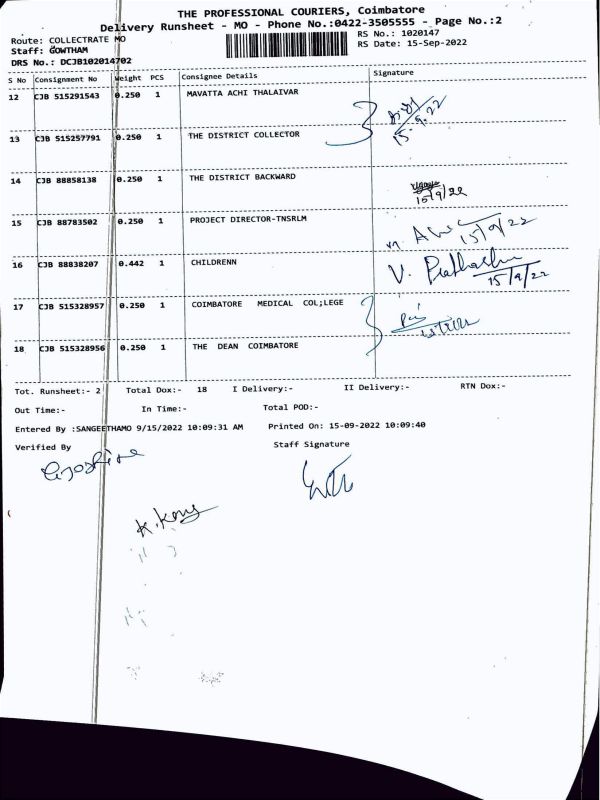 THE PROFESSIONAL COURIERS, Coimbatore
Delivery Runsheet - MO - Phone No.:0422-3505555 - Page No.:2
Route: COLLECTRATE MO
RS No.: 1020147
Staff: GOWTHAM
RS Date: 15-Sep-2022
DRS No.: DCJB102014702
S No Consignment No Weight PCS Consignee Details Signature
12 CJB 515291543 0.250 1 MAVATTA ACHI THALAIVAR
15.9.22
13 CJB 515257791 0.250 1 THE DISTRICT COLLECTOR
14 CJB 88858138 0.250 1 THE DISTRICT BACKWARD
15/9/22
15 CJB 88783502 0.250 1 PROJECT DIRECTOR-TNSRLM
15/9/22
16 CJB 88838207 0.442 1 CHILDRENN
V.
15/9/22
17 CJB 515328957 0.250 1 COIMBATORE MEDICAL COL;LEGE
18 CJB 515328956 0.250 1 THE DEAN COIMBATORE
Tot. Runsheet:- 2 Total Dox:- 18 I Delivery:- II Delivery:- RTN Dox:-
Out Time:- In Time:- Total POD:-
Entered By :SANGEETHAMO 9/15/2022 10:09:31 AM Printed On: 15-09-2022 10:09:40
Verified By Staff Signature